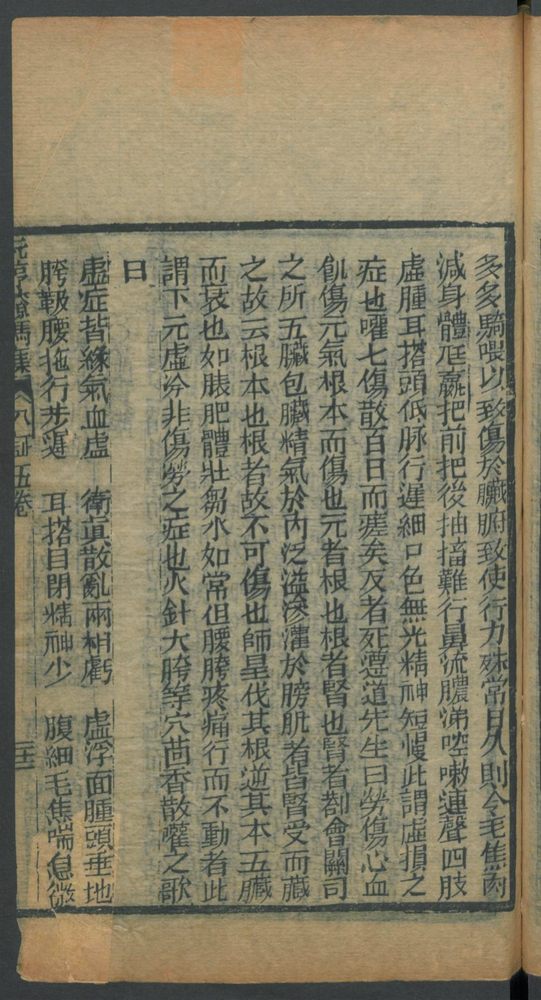 多多騎喂以致傷於臟腑致使行力殊常日久則令毛焦肉
減身體尫羸把前把後抽搐難行鼻流膿涕啌嗽連聲四肢
虛腫耳搭頭低脉行遲細口色無光精神短慢此謂虛損之
症也嚾七傷散百日而瘥矣反者死遵道先生曰勞傷心血
飢傷元氣根本而傷也元者根也根者腎也腎者劄會關司
之所五臟包臟精氣於內泛溢滲灌於膀肌者皆腎受而臟
之故云根本也根者故不可傷也師皇伐其根逆其本五臟
而衰也如脿肥體壯芻水如常但腰胯疼痛行而不動者此
謂下元虛冷非傷勞之症也火針大胯等穴茴香散嚾之歌
曰
虛症皆緣氣血虛 衛真散亂兩相虧 虛浮面腫頭垂地
胯靸腰拖行步遲 耳搭目閉精神少 腹細毛焦喘息微
元亨療馬集 八証 五卷